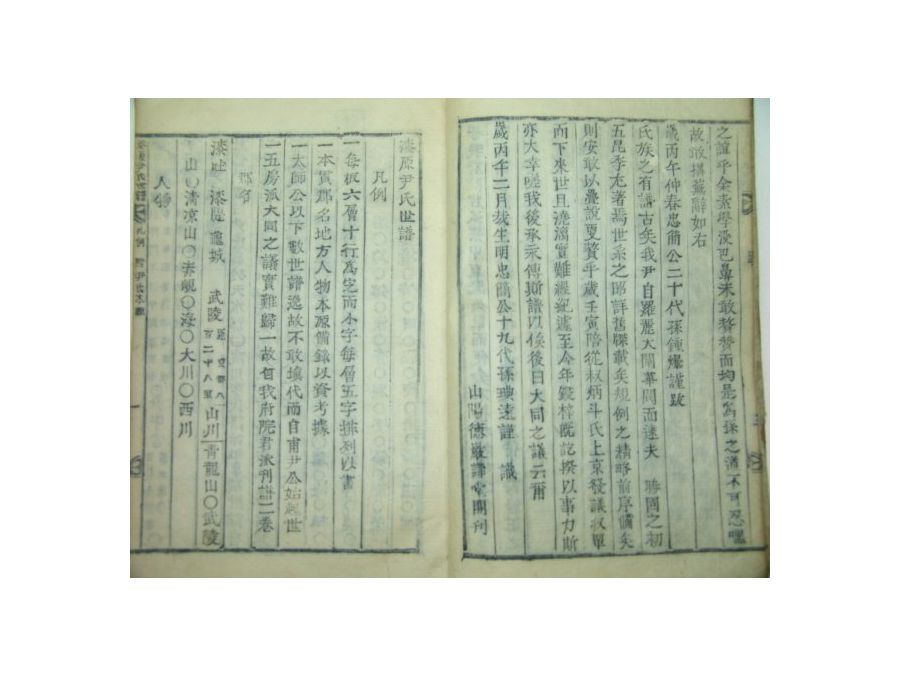 之誼乎余素學淺已鼻未敢贅贊而均是爲孫之道不可忍嘿
故敢搆蕪辭如右
歲丙午仲春忠簡公二十代孫鍾爆謹跋
氏族之有譜古矣我尹自羅麗大閥華閥而逮夫 勝國之初
五昆季尤著焉世系之昭詳舊牒載矣規例之精略前序備矣
則安敢以疊說更贅乎歲壬寅陪從叔炳斗氏上京發議收單
而下來世且澆漓實難經紀遽至今年鋟梓旣訖揆以事力斯
亦大幸嗟我後承永傳斯譜以俟後日大同之議云爾
歲丙午二月哉生明忠簡公十九代孫璜遠謹 識
山陽德巖講堂開刊
漆原尹氏世譜
凡例
一每板六層十行爲定而小字每層五字排列以書
一本貫郡名地方人物本源備錄以資考據
一太師公以下數世譜逸故不敢填代而自甫尹公始起世
一五房派大同之議實難歸一故自我府院君派刊譜二卷
郡名
漆吐 漆隄 龜城 武陵 山川 靑龍山○武陵
山○淸凉山○ 峴○海○大川○西川
人物